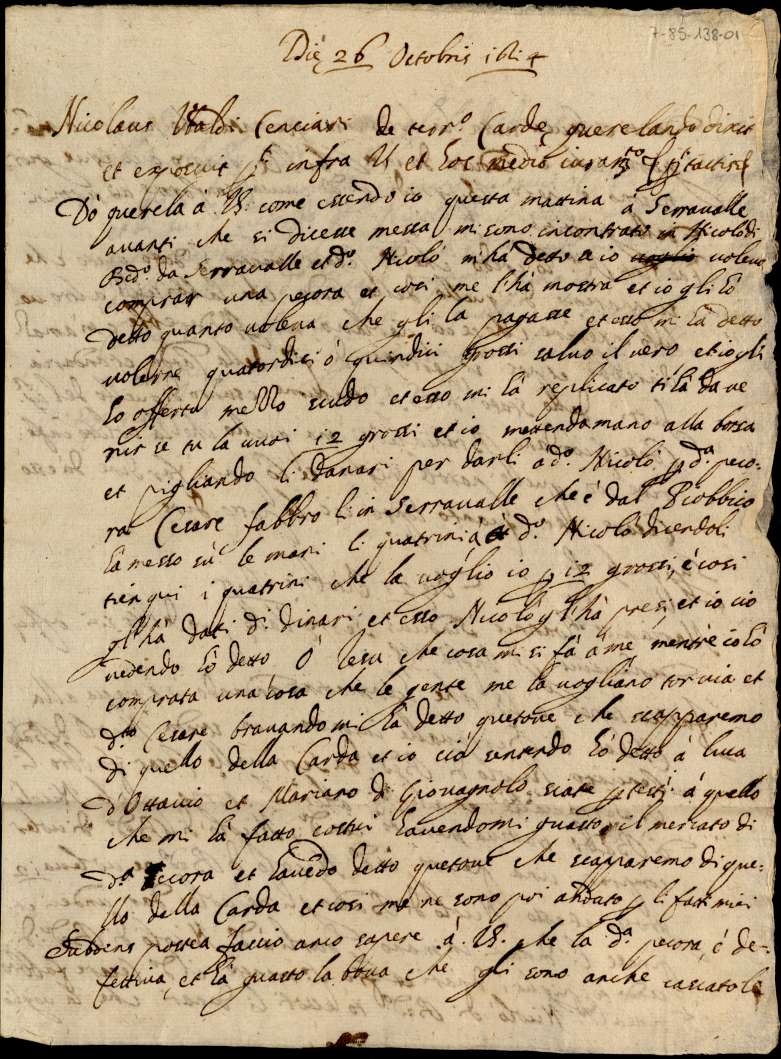 7-85-138-01
Die 26 Octobris 1614
Nicolaus Ubaldi Cenciari de terr.o Cardę querelando dixit
et exposuit infra et medio iuram.to tactis
Dò querela à V.S. come essendo io questa mattina à Serravalle
avanti che si dicesse messa mi sono incontrato in Nicolò di
Bed.o da Serravalle et d.o Nicolò m'hà detto se io voglio volevo
comprar una pecora et così me l'hà mostra et io gli hò
detto quanto voleva che gli la pagasse et esso mi hà detto
volerne quatordici ò quindici grossi salvo il vero et io gli
hò offerto mezzo scudo et esso mi hà replicato ti hà da ve
nir se tu la vuoi 12 grossi et io mettendo mano alla borsa
et pigliando li danari per darli à d.o Nicolò p d.a peco-
ra Cesare fabbro lì in Serravalle che è dal Piobbico
hà messo sù le mani li quatrini à d.o Nicolò dicendoli
tien qui i quatrini che la voglio io p 12 grossi, è così
gl'hà dati d.i dinari et esso Nicolò gl'hà presi, et io ciò
vedendo hò detto ò Iesu che cosa mi si fà à me, mentre io hò
comprata una cosa che le gente me la vogliano tor via et
d.to Cesare bravandomi hà detto quetove che scapparemo
di quello della Carda et io ciò sentendo hò detto à Luca
d'Ottavio et Mariano di Giovagnolo siate p testi à quello
che mi hà fatto costui havendomi guasto il mercato di
d.a pecora et havēdo detto quetove che scapparemo di que-
llo della Carda et così me ne sono poi andato p li fatti miei
Subdens postea faccio anco sapere à V.S. che la d.a pecora è de-
fettiva, et hà guasto la bocca che gli sono anche cascato le